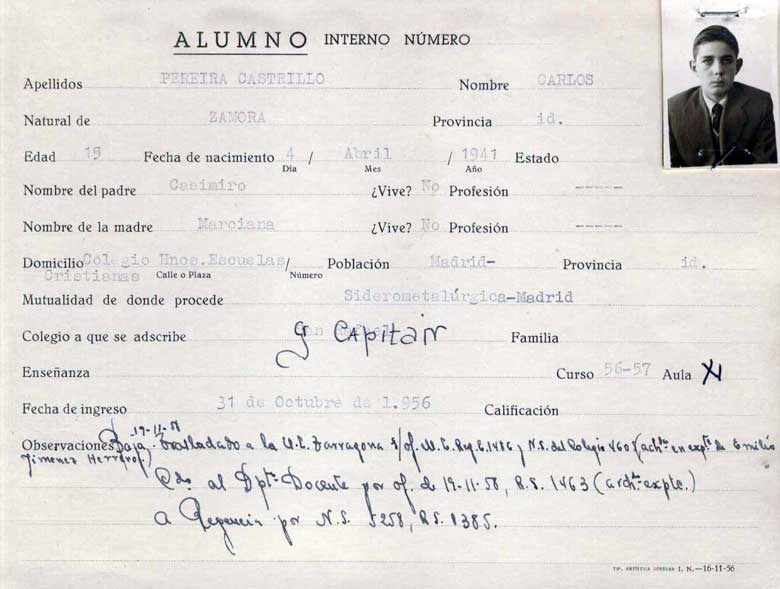 ALUMNO INTERNO NÚMERO
Apellidos PEREIRA CASTRILLO Nombre CARLOS
Natural de ZAMORA Provincia id.
Edad 15 Fecha de nacimiento 4 / Abril / 1941 Estado
Día Mes Año
Nombre del padre Casimiro ¿Vive? No Profesión -----
Nombre de la madre Marciana ¿Vive? No Profesión -----
Domicilio Colegio Hnos. Escuelas / Población Madrid- Provincia id.
Cristianas Calle o Plaza Número
Mutualidad de donde procede Siderometalúrgica-Madrid
Colegio a que se adscribe G Capitán Familia
Enseñanza Curso 56-57 Aula XI
Fecha de ingreso 31 de Octubre de 1.956 Calificación
19-11-58
Observaciones Baja. Trasladado a la U.L. Tarragona s/of. Reg. y N.S. del Colegio 460 en expte. de Emilio
Jimenez
al Dptº Docente por of. de 19-11-58, R.S. 1463 (archº expte.)
A Regencia por N.S. 5258, RS. 8385.
TIP. ARTÍSTICA I. N.—16-11-56